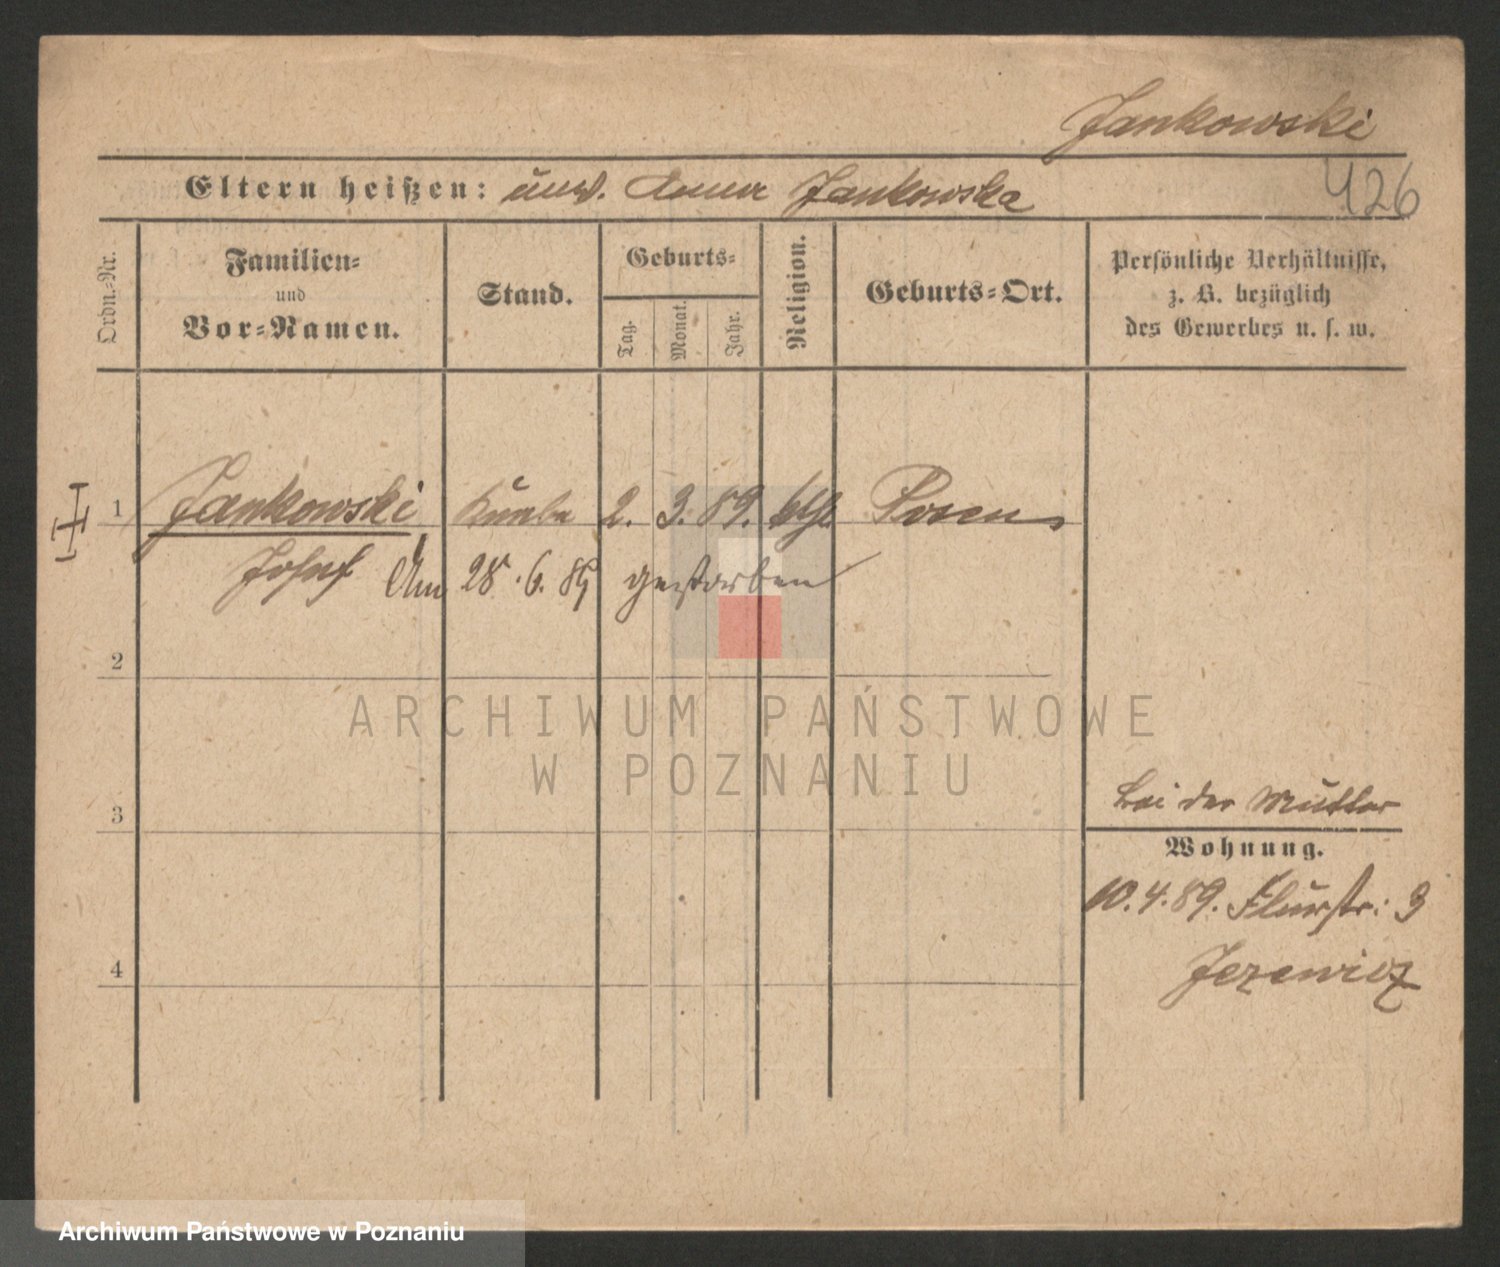 Jankowski
Eltern heißen: unv. Anna Jankowska
426
Ordn.-Nr.
Familien-
und
Vor-Namen.
Stand.
Geburts-
Tag.
Monat.
Jahr.
Religion.
Geburts-Ort.
Persönliche Verhältnisse,
z. B. bezüglich
des Gewerbes u. s. w.
1 Jankowski Knabe 2. 3. 89. kth. Posen
Josef Am 28. 6. 89 gestorben
2
ARCHIWUM PAŃSTWOWE
W POZNANIU
bei der Mutter
3
Wohnung.
10. 4. 89. Flurstr: 3
Jezewicz
4
Archiwum Państwowe w Poznaniu